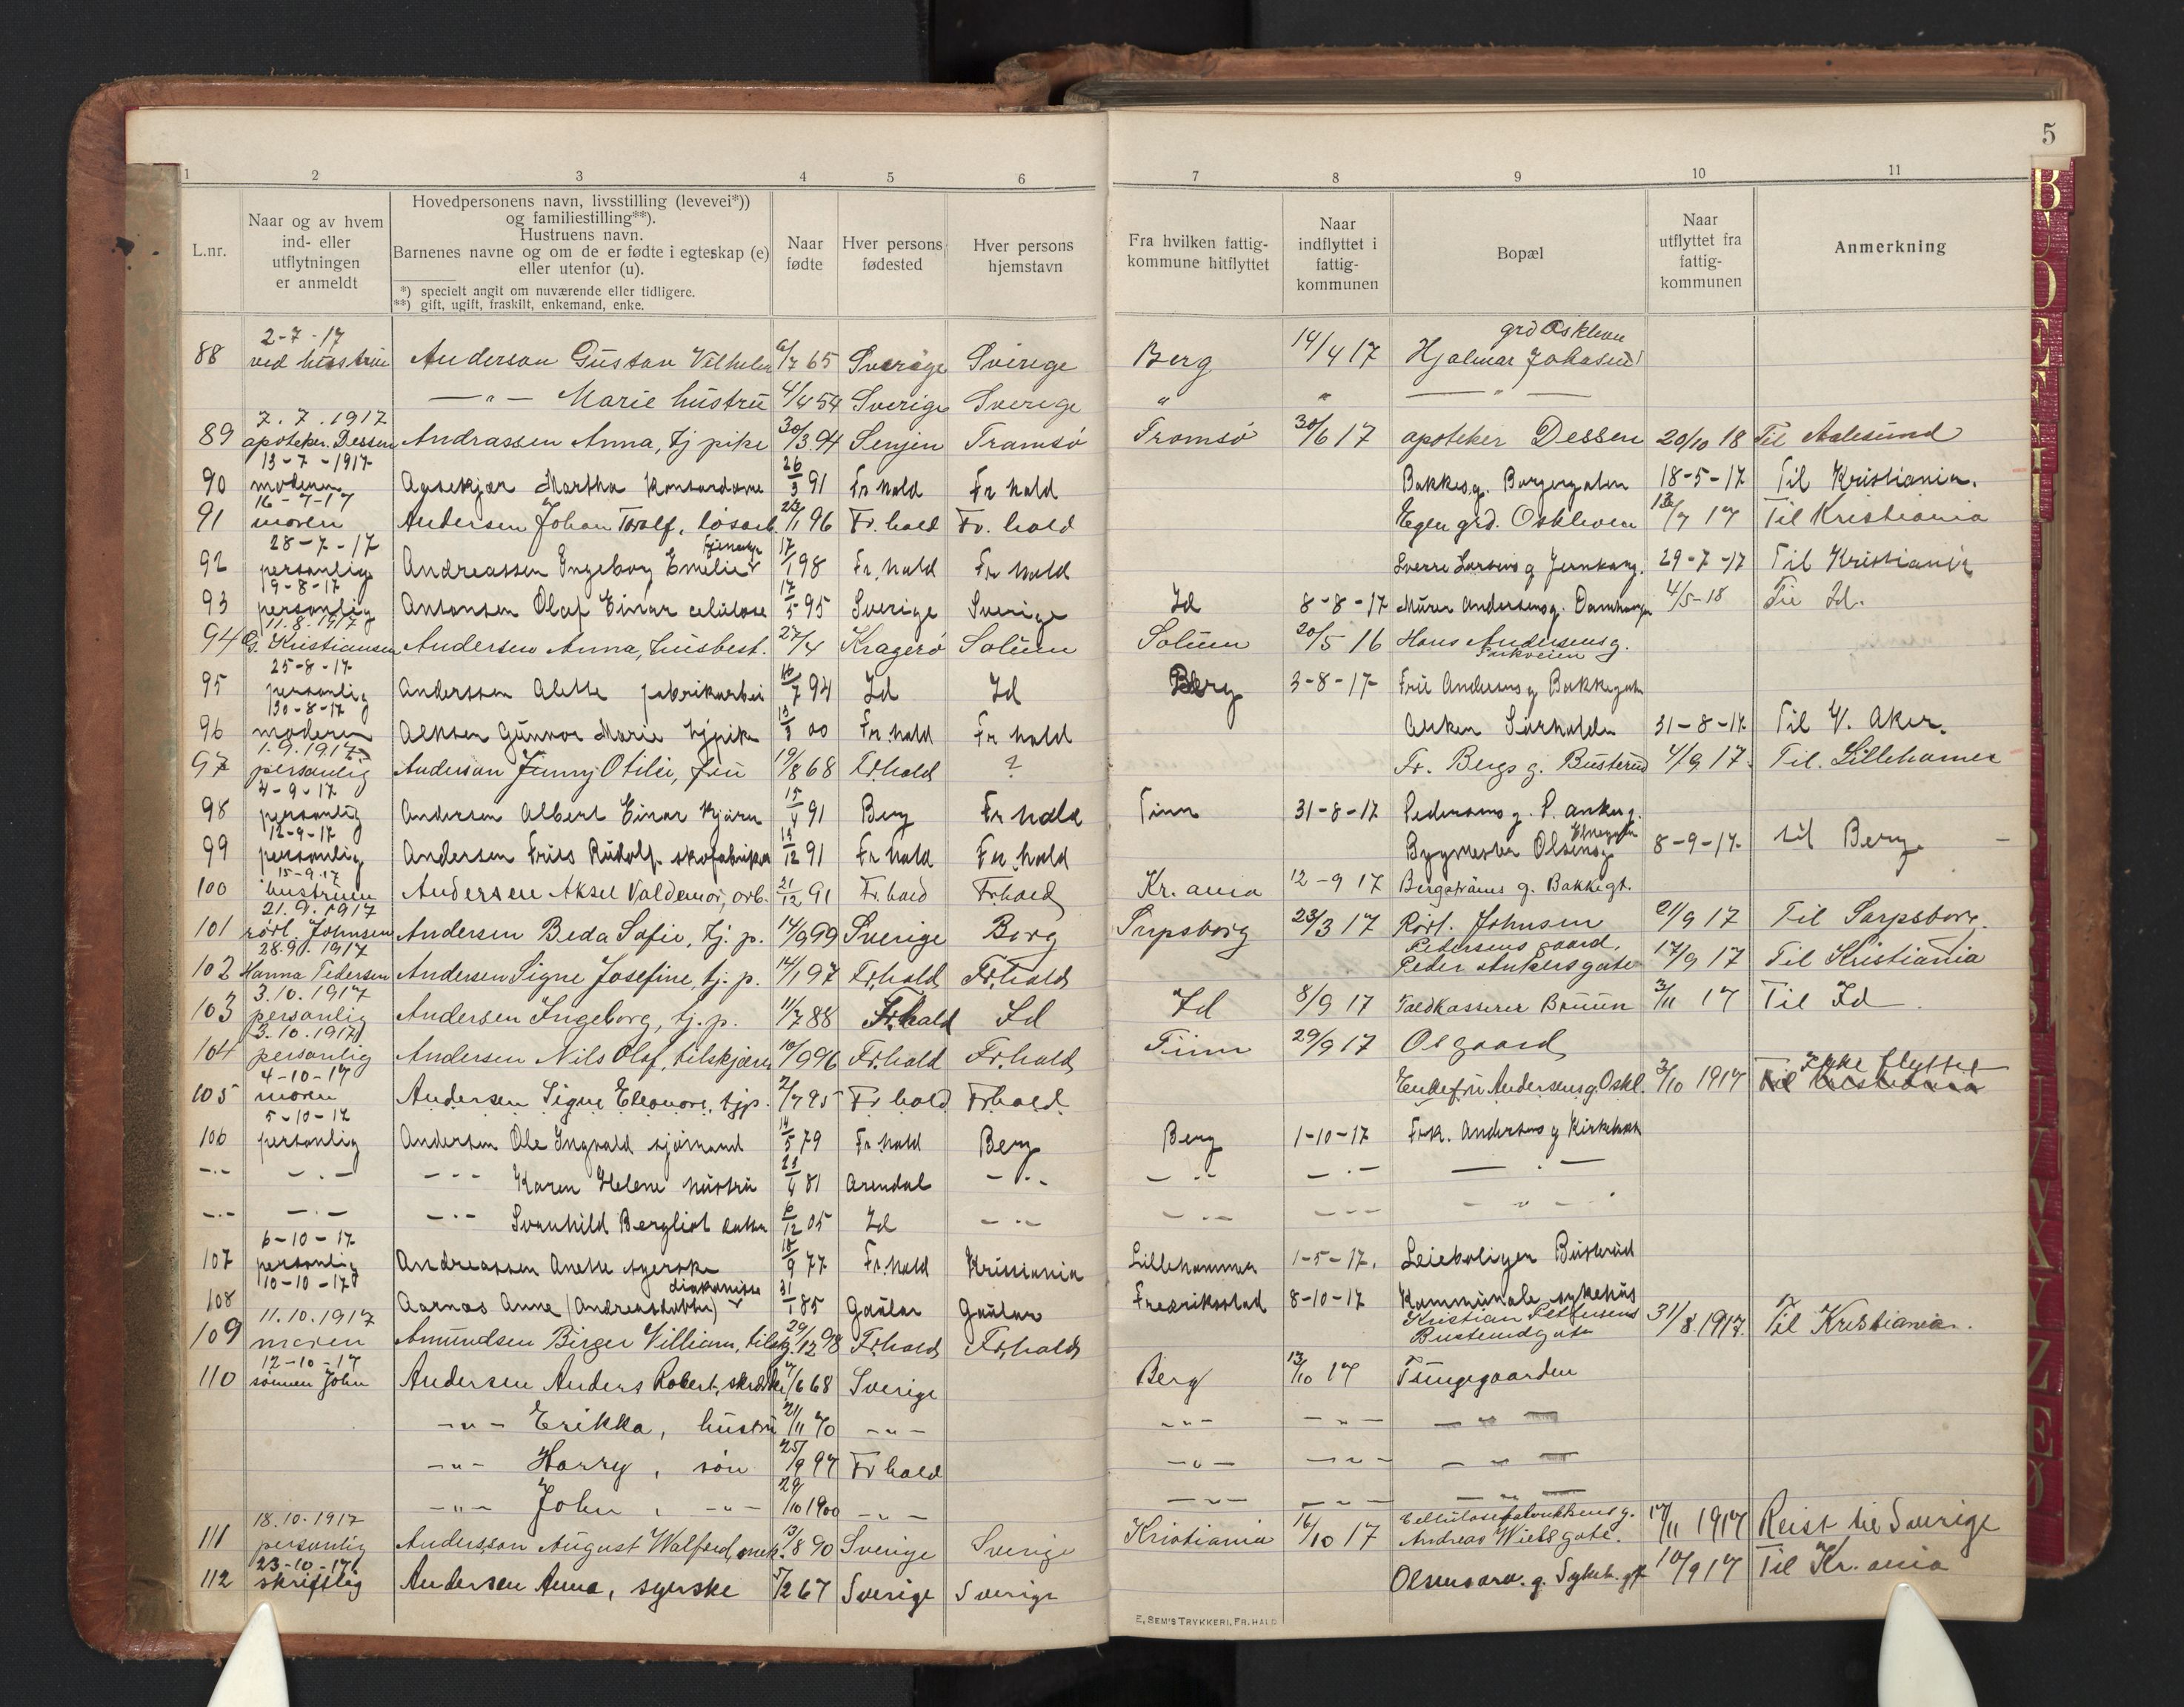 5
1 2 3 4 5 6 7 8 9 10 11
L.nr.
Naar og av hvem
ind- eller
utflytningen
er anmeldt
Hovedpersonens navn, livsstilling (levevei*))
og familiestilling**).
Hustruens navn.
Barnenes navne og om de er fødte i egteskap (e)
eller utenfor (u).
*) specielt angit om nuværende eller tidligere.
**) gift, ugift, fraskilt, enkemand, enke.
Naar
fødte
Hver persons
fødested
Hver persons
hjemstavn
Fra hvilken fattig-
kommune hitflyttet
Naar
indflyttet i
fattig-
kommunen
Bopæl
Naar
utflyttet fra
fattig-
kommunen
Anmerkning
2-7-17 grd Oskleven
88 ved hustrue Anderson Gustav Vilhelm 6/7 65 Sverige Sverige Berg 14/4 17 Hjalmar Johasens
—"— Marie hustru 4/4 54 Sverige Sverige " " —"—
7.7.1917
89 apoteker Dessen Andrassen Anna, tj pike 30/3 94 Senjen Tromsø Tromsø 30/6 17 apoteker Dessen 20/10 18 Til Aalesund
13-7-1917
90 moderen Martha Kontordame 26/3 91 Fr hald Fr hald Bakkeg. Borgergaten 18-5-17 Til Kristiania.
16-7-17
91 moren Andersen Johan Torolf, løsarb. 23/1 96 Fr. hald Fr. hald Egen grd. Oskleven 13/7 17 Til Kristiania
28-7-17
92 personlig Andreassen Ingeborg Emelie 17/1 98 Fr. hald Fr hald Sverre Larsens g Jernkorg. 29-7-17 Til Kristiania
19-8-17
93 personlig Antonsen Olaf Einar celulose 17/5 95 Sverige Sverige Id 8-8-17 Murer Andersens g. Damhaugen 4/5-18 Til Id.
11.8.1917
94 G. Kristiansen Andersen Anna, husbest. 27/4 Kragerø Solum Solum 20/5 16 Hans Andersens g.
Parkveien
25-8-17
95 personlig Andersson Alette fabrikarbei 16/7 94 Id Id Berg 3-8-17 Fru Andersens g Bakkegaten
30-8-17
96 moderen Alksen Gunvor Marie tjpike 13/3 00 Fr. hald Fr hald Sørhalden 31-8-17 Til V. Aker.
1.9.1917
97 personlig Anderson Jenny Otilie, fru 19/8 68 Frhald ? Fr. Bergs g. Busterud 4/9 17. Til Lillehamer
4-9-17
98 personlig Andersen Albert Einar kjører 15/4 91 Berg Fr hald Tinn 31-8-17 Pedersens g. P. ankers g.
12-9-17
99 personlig Andersen Friis Rudolf skofabrikar 13/12 91 Fr hald Fr hald Bygmester Olsens g 8-9-17 til Berg
15-9-17
100 hustruen Andersen Aksel Valdemar, arb. 21/12 91 Fr. hald Frhald Kr.ania 12-9 17 Bergstrøms g. Bakkegt.
21.9.1917
101 rørl. Johnsen Andersen Beda Sofie, tj. p. 14/9 99 Sverige Berg Sarpsborg 23/3 17 Rørl. Johnsen 21/9 17 Til Sarpsborg.
28.9.1917 Pedersens gaard,
102 Hanna Pedersen Andersen Signe Josefine, tj. p. 14/1 97 Fr.hald Fr.hald Peder Ankers gate 17/9 17 Til Kristiania
3.10.1917
103 personlig Andersen Ingeborg, tj. p. 11/7 88 Fr.hald Id Id 8/9 17 Toldkasserer Bruun 3/11 17 Til Id.
3.10.1917
104 personlig Andersen Nils Olaf, tilskjærer 10/9 96 Fr.hald Fr.hald Tinn 29/9 17 Os gaard
4-10-17 Ikke flyttet
105 moren Andersen Signe Eleonore, tjp. 2/7 95 Fr hald Frhald Enkefru Andersens g. Oskl. 3/10 1917 Til Kristiania
5-10-17
106 personlig Andersen Ole Ingvald sjømand 14/5 79 Fr hald Berg Berg 1-10-17 Frk. Andersens g
-"- -"- --- Karen Helene hustru 23/4 81 Arendal -"- -"- -"- —"—
-"- -"- -"- Svanhild Bergliot datter 6/12 05 Id -"- -"- --- -"-
6-10-17
107 personlig Andreassen Anette syerske 18/9 77 Fr. hald Kristiania Lillehammer 1-5-17. Leieboligen Busterud
10-10-17 diakonisse
108 Aarnas Anne (Andreasdatter) 31/1 85 Gaular Gaular Fredrikstad 8-10-17 Kommunale sykehus
11.10.1917 Kristian Pettersens
109 moren Amundsen Birger Villiam, tilskj. 29/12 98 Fr.hald Fr.hald Busterudgata 31/8 1917. Til Kristiania.
12-10-17
110 sønnen John Andersen Anders Robert, skrædder 7/6 68 Sverige Berg 13/10 17 Tungegaarden
-"- Erikka, hustru 21/11 70 -"- -"- -"- -"-
-"- Harry, søn 25/9 97 Fr hald -"- -"- -"-
-"- John, -"- 29/10 1900 -"- -"- -"- -"-
18.10.1917 Cellulosefabrikkens g.
111 personlig Andersson August Walfred, mek. 13/8 90 Sverige Sverige Kristiania 16/10 17 Andreas Wiels gate. 17/11 1917 Reist til Sverige
23-10-17
112 skriftlig Andersen Anna, syerske 5/2 67 Sverige Sverige Olsens arv. g. Sykeh. gt 10/9 17 Til Kr.ania
E. SEM'S TRYKKERI, FR.HALD